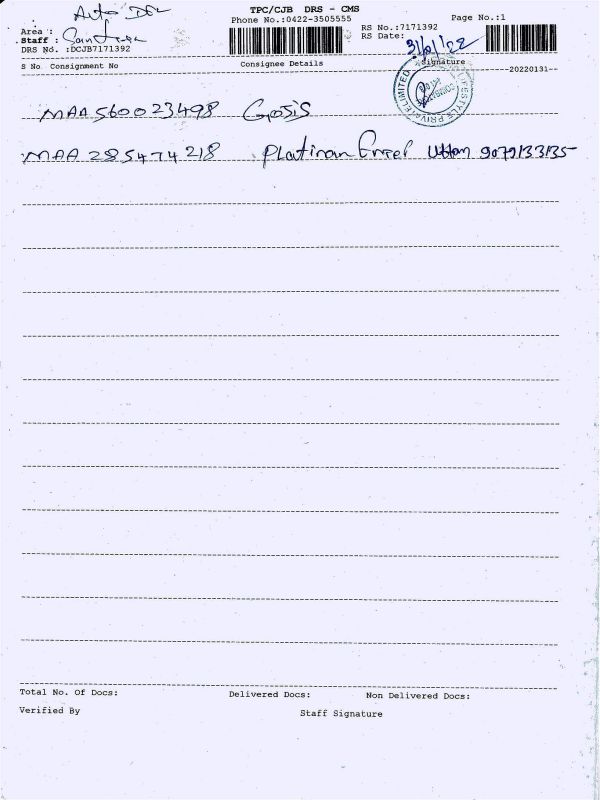 TPC/CJB DRS - CMS
Phone No.:0422-3505555
Page No.:1
Auto
Area :
RS No.:7171392
Staff :
RS Date: 31/01/22
DRS No. :DCJB7171392
S No Consignment No Consignee Details Signature
--20220131--
LIFESTYLE PRIVATE LIMITED
COIMBATORE
MAA560023498
MAA 285474218 Platinam Uttam 9079133135
Total No. Of Docs: Delivered Docs: Non Delivered Docs:
Verified By Staff Signature